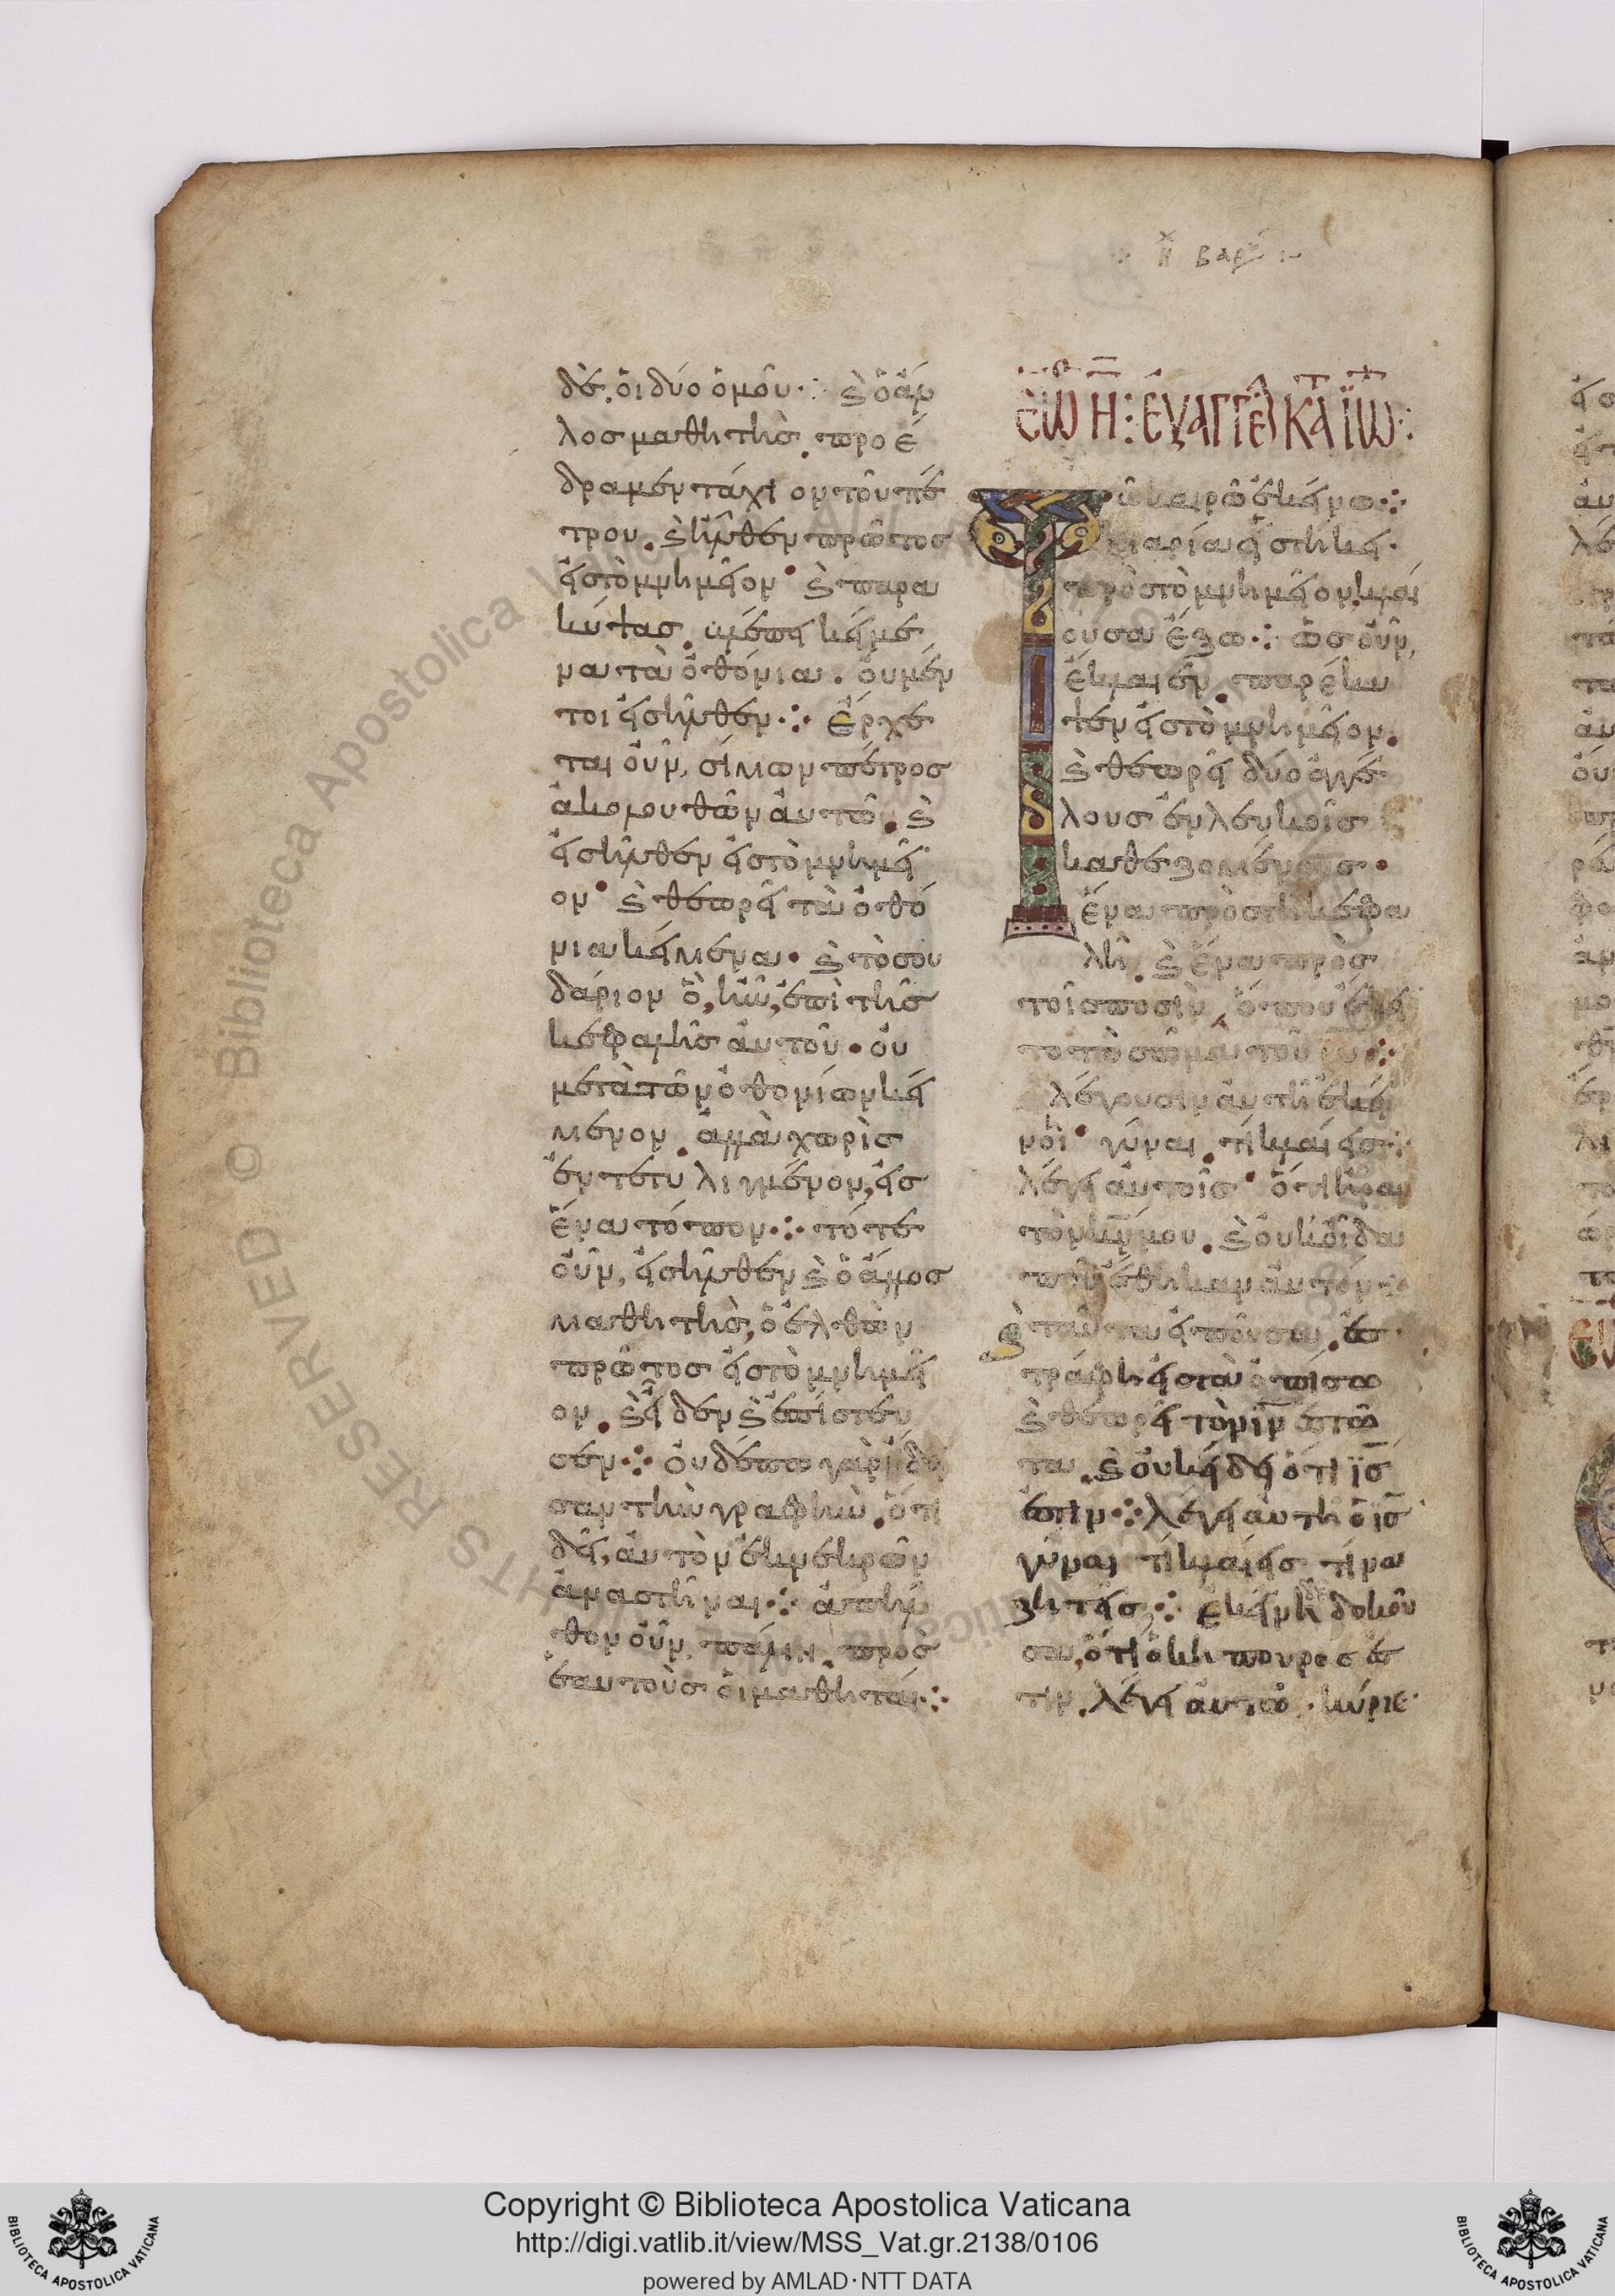 δὲ. ὁι δύο ὁμοῦ · ϗ ὁ ἄλ
λος μαθητὴς. προέ
δραμεν τάχιον τοῦ πέ
τρου. ϗ ἦλθεν πρῶτος
εἰς τὸ μνημεῖον · ϗ παρα
κύψας. βλέπει κείμε
να τὰ ὀθόνια. οὐ μέν
τοι εἰσῆλθεν ⁘ ἔρχε
ται οὖν, σίμων πέτρος
ἀκολουθῶν αὐτῶ. ϗ
εἰσῆλθεν εἰς τὸ μνημεῖ
ον · ϗ θεωρεῖ τὰ ὀθό
νια κείμενα · ϗ τὸ σου
δάριον ὃ, ἦν, ἐπὶ τῆς
κεφαλῆς αὐτοῦ · οὐ
μετὰ τῶν ὀθονίων κεί
μενον. ἀλλὰ χωρὶς
ἐντετυλιγμένον, εἰς
ἕνα τόπον ⁘ τότε
οὖν, εἰσῆλθεν ϗ ὁ ἄλλος
μαθητὴς, ὁ ἐλθὼν
πρῶτος εἰς τὸ μνημεῖ
ον. ϗ εἶδεν ϗ ἐπίστευ
σεν ⁘ οὐδέπω γὰρ ἤδει
σαν τὴν γραφὴν. ὅτι
δεῖ, αὐτὸν ἐκ νεκρῶν
ἀναστῆναι ⁘ ἀπῆλ
θον οὖν, πάλιν, πρὸς
ἑαυτοὺς ὁι μαθηταί ⁘
ἑω η: ἐυαγγελ κατ ιω:
Τῶ καιρῶ ἐκείνω ⁘
μαρία εἱστήκει
πρὸς τὸ μνημεῖον κλαί
ουσα ἔξω ⁘ ὡς οὖν,
ἔκλαιεν. παρέκυ
ψεν εἰς τὸ μνημεῖον.
ϗ θεωρεῖ δύο ἀγγέ
λους ἐν λευκοῖς
καθεζομένους ·
ἕνα πρὸς τῆ κεφα
λῆ. ϗ ἕνα πρὸς
τοῖς ποσὶν, ὅπου ἔκει
το τὸ σῶμα τοῦ ιυ ⁘
λέγουσιν αὐτῆ ἐκεῖ
νοι · γύναι. τί κλαίεις ⁘
λέγει αὐτοῖς · ὅτι ἦραν
τὸν κν μου. ϗ οὐκ οἶδα
ποῦ ἔθηκαν αὐτόν ⁘
ϗ ταῦτα εἰποῦσα. ἐσ
τράφη εἰς τὰ ὀπίσω
ϗ θεωρεῖ τὸν ιν ἑστῶ
τα. ϗ οὐκ ἤδει ὅτι ις
ἐστιν ⁘ λέγει αὐτῆ ὁ ις
γύναι τί κλαίεις τίνα
ζητεῖς ⁘ ἐκείνη δοκοῦ
σα, ὅτι ὁ κηπουρός ἐσ
τιν. λέγει αὐτῶ. κύριε
Copyright © Biblioteca Apostolica Vaticana
http://digi.vatlib.it/view/MSS_Vat.gr.2138/0106
powered by AMLAD·NTT DATA
BIBLIOTECA APOSTOLICA VATICANA
BIBLIOTECA APOSTOLICA VATICANA